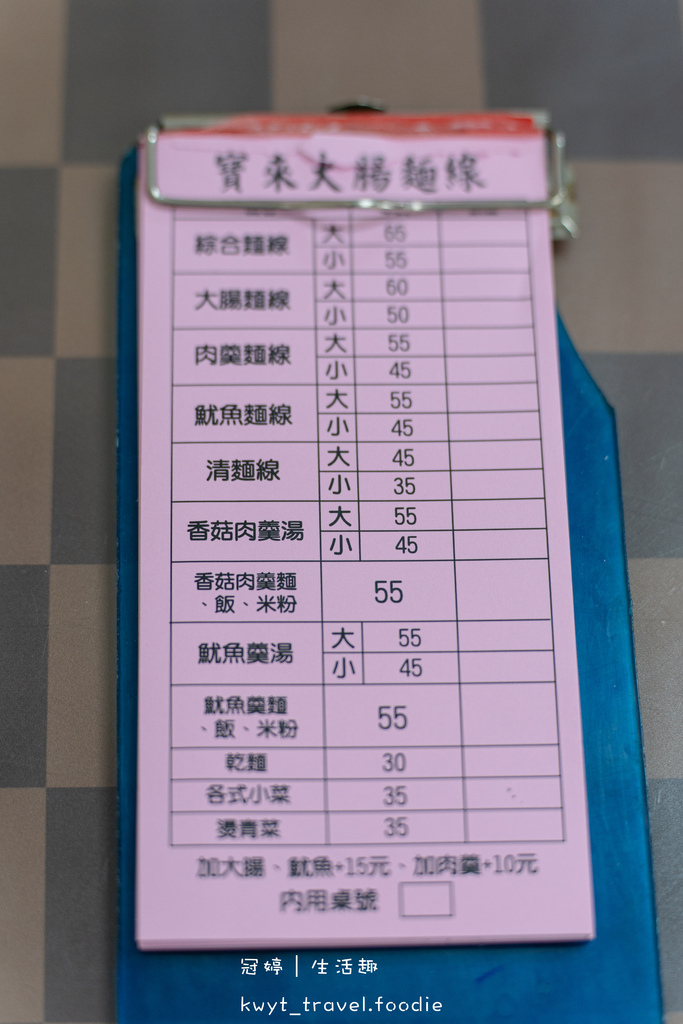 寶來大腸麵線
綜合麵線 大 65
小 55
大腸麵線 大 60
小 50
肉羹麵線 大 55
小 45
魷魚麵線 大 55
小 45
清麵線 大 45
小 35
香菇肉羹湯 大 55
小 45
香菇肉羹麵
、飯、米粉 55
魷魚羹湯 大 55
小 45
魷魚羹麵
、飯、米粉 55
乾麵 30
各式小菜 35
燙青菜 35
加大腸、魷魚+15元、加肉羹+10元
內用桌號
冠婷|生活趣
kwyt_travel.foodie